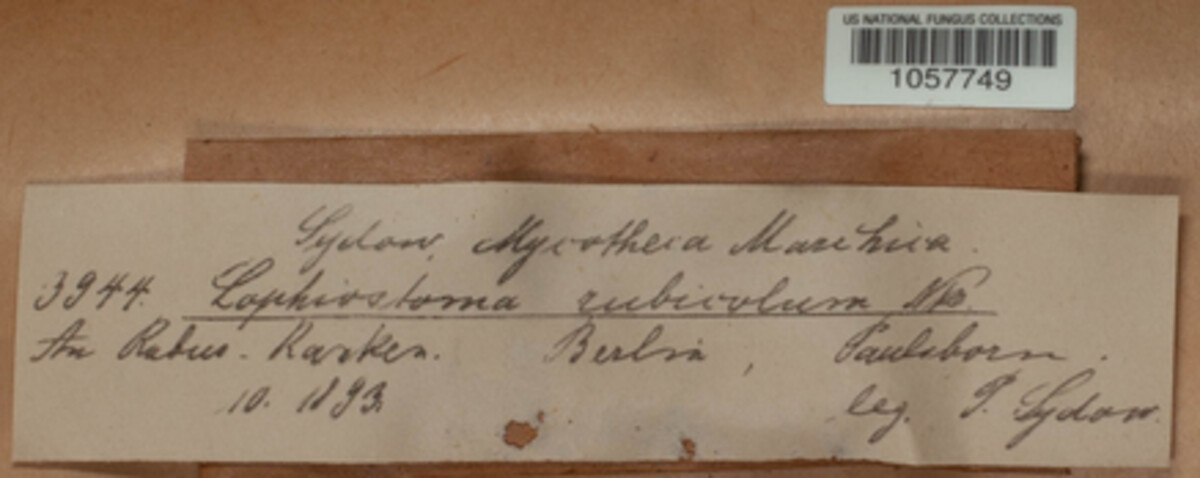 US NATIONAL FUNGUS COLLECTIONS
1057749
Sydow, Mycotheca Marchica.
3944. Lophiostoma rubicolum
An Rubus-Ranken. Berlin, Paulsborn.
10. 1893. leg. P. Sydow.